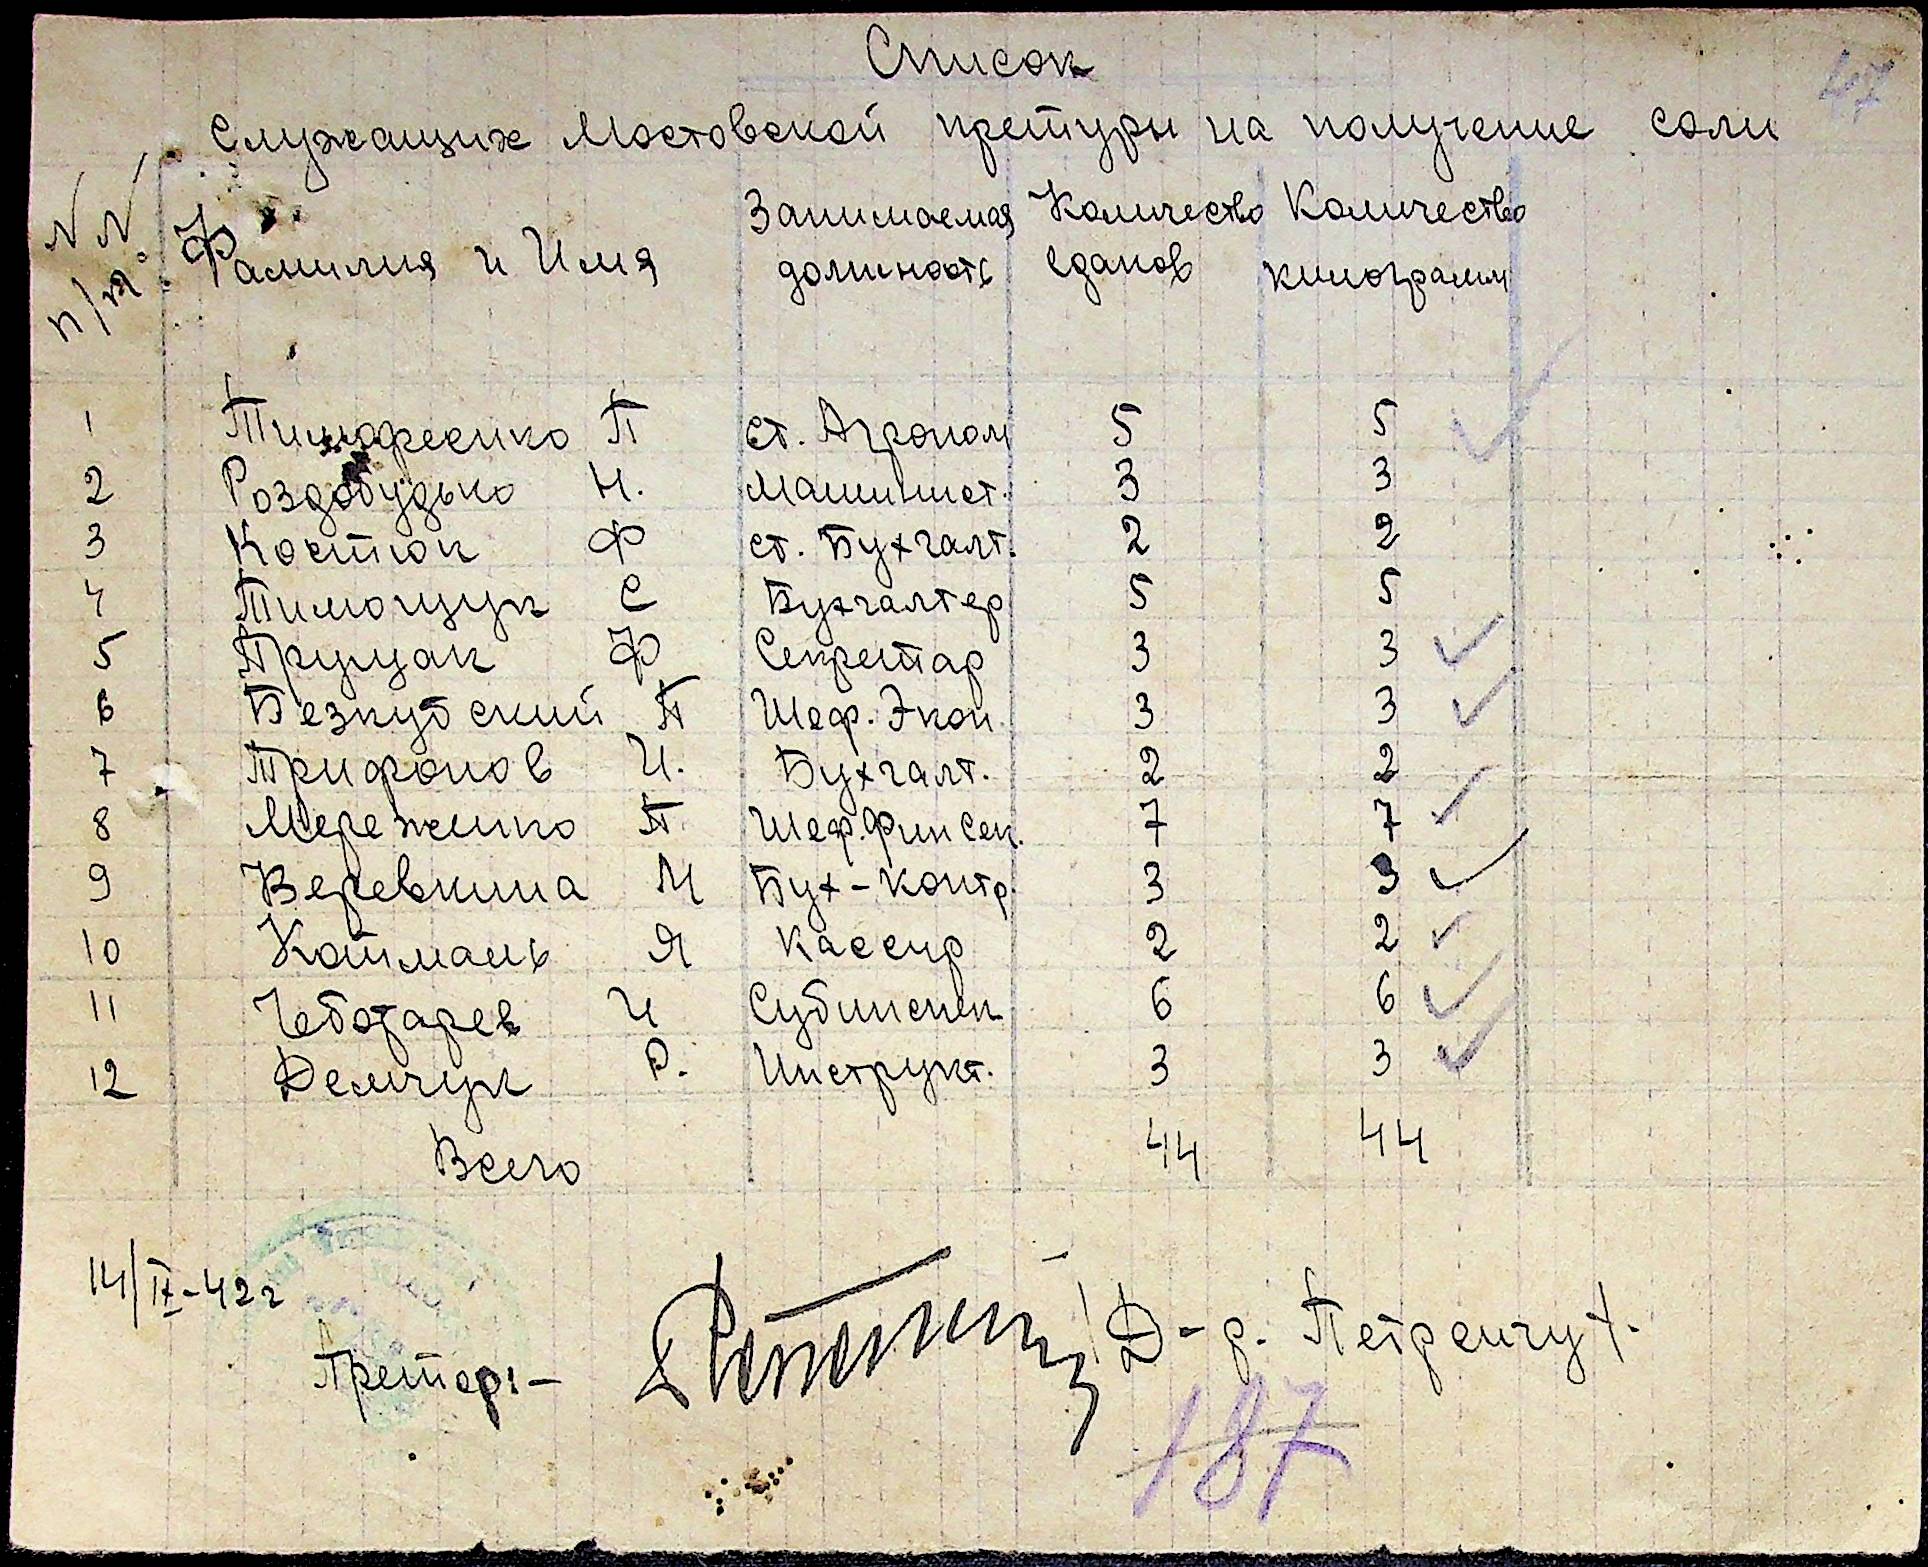 47
Список
служащих Мостовской претуры на получение соли
NN п/п. Фамилия и Имя Занимаемая должность Количество едаков Количество килограмм
1 Тимофеенко П ст. Агроном 5 5
2 Роздобудько Н. Машинист. 3 3
3 Костюк Ф ст. Бухгалт. 2 2
4 Тимощук С Бухгалтер 5 5
5 Прущак Ф Секретар 3 3
6 Безкубский П Шеф. Экон. 3 3
7 Трифонов И. Бухгалт. 2 2
8 Мереженко П. Шеф. фин сек. 7 7
9 Веревкина М Бух-контр. 3 3
10 Коймань Я Кассир 2 2
11 Чеботарев И Субинспек 6 6
12 Демчук Р. Инструкт. 3 3
Всего 44 44
14/IX-42г
Претор: - Д-р. Петренчук.
187